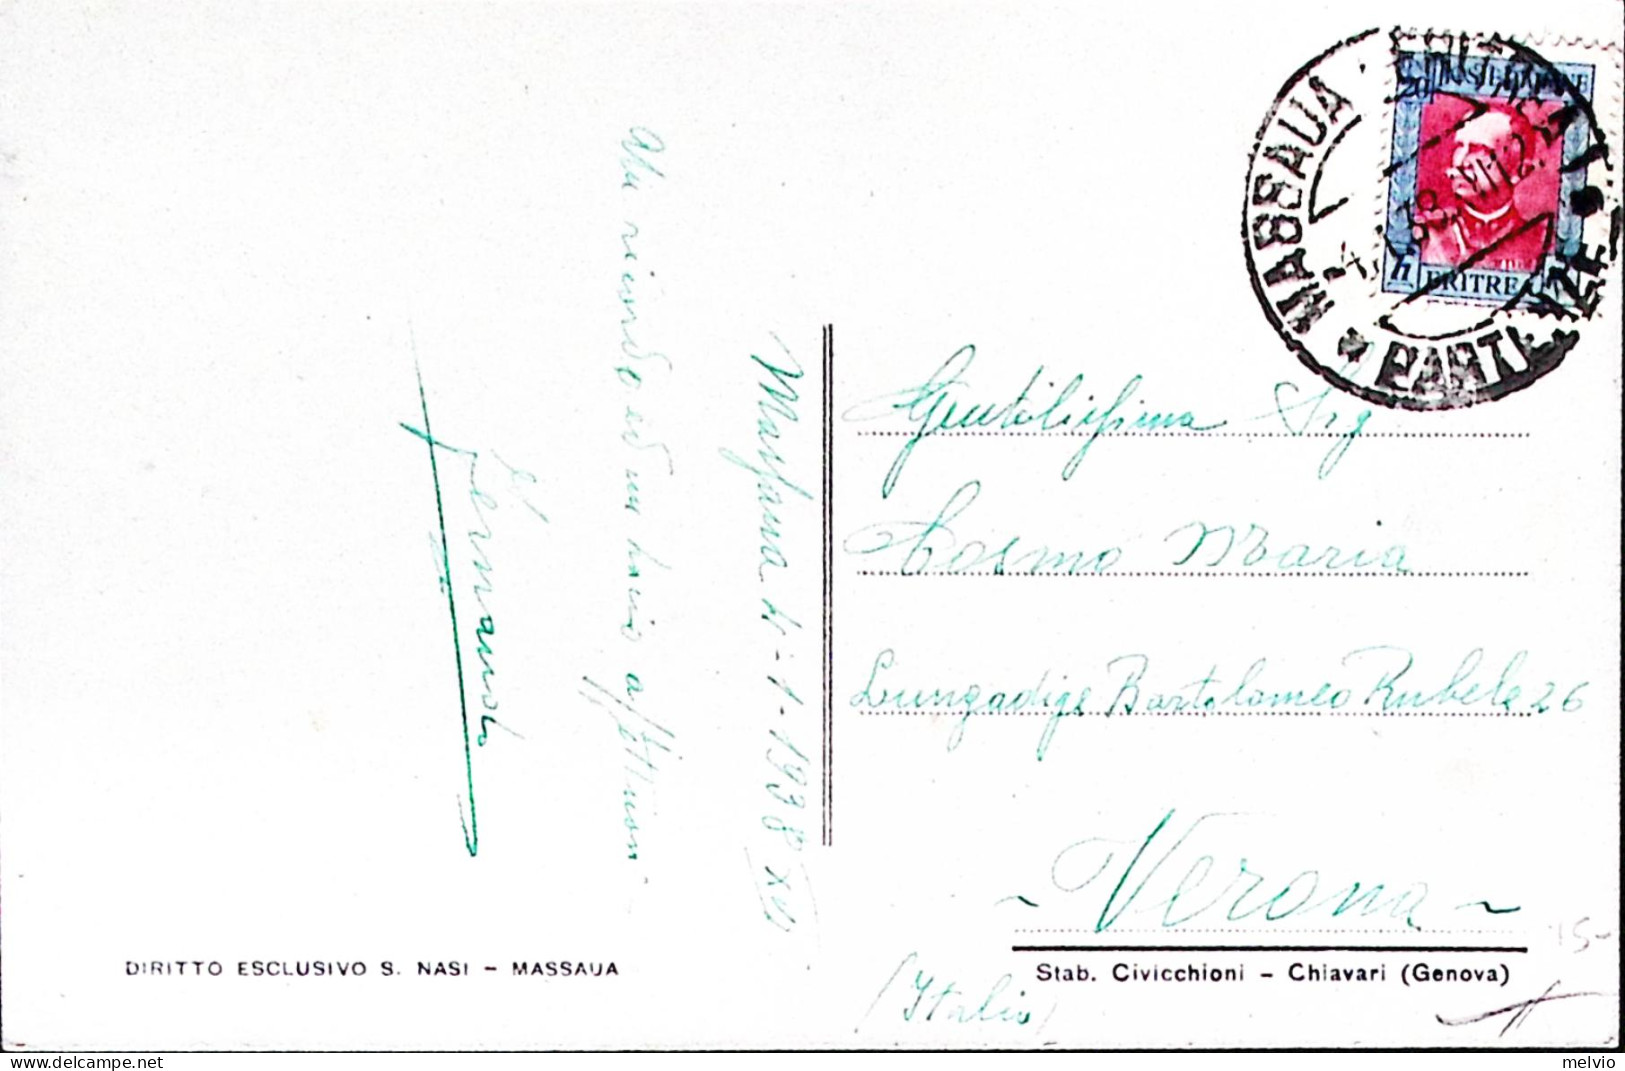 Massaua 4-1-1938 XVI
Un ricordo ed un bacio affettuoso
Fernando
DIRITTO ESCLUSIVO S. NASI - MASSAUA
MASSAUA
PARTENZE
POSTE ITALIANE
ERITREA
Gentilissima Sig
Cosmo Maria
Lungadige Bartolomeo Rubele 26
~ Verona ~
(Italia)
Stab. Civicchioni - Chiavari (Genova)
15-
melvio